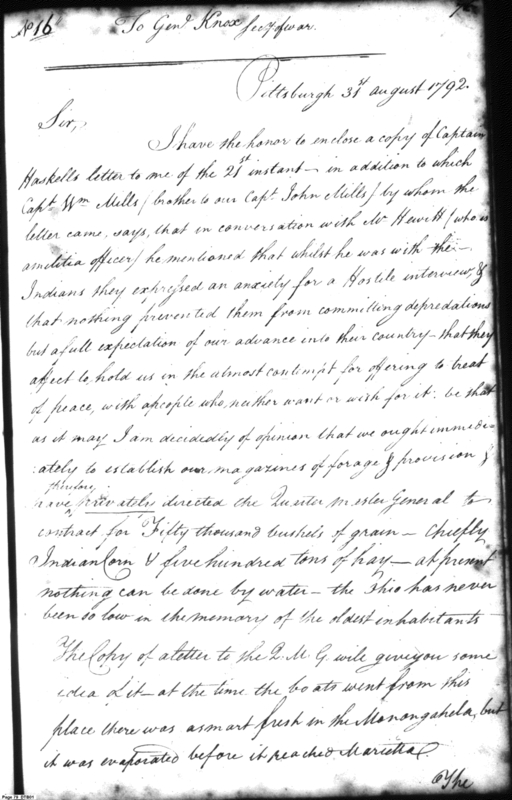 No 16
To Genl Knox Secy of war.
Pittsburgh 31st august 1792.
Sir,
I have the honor to enclose a copy of Captain
Haskells letter to me of the 21st instant — in addition to which
Capt Wm Mills (brother to our Capt John Mills) by whom the
letter came, says, that in conversation with Mr Hewitt (who is
a militia officer) he mentioned that whilst he was with the —
Indians they expressed an anxiety for a Hostile interview &
that nothing prevented them from committing depredations
but a full expectation of our advance into their country — that they
affect to hold us in the utmost contempt for offering to treat
of peace, with a people who, neither want or wish for it: be that
as it may I am decidedly of opinion that we ought immedi
:ately to establish our magazines of forage & provision &
therefore
have privately directed the Quarter Master General to
contract for Fifty thousand bushels of grain — Chiefly
Indian Corn & five hundred tons of hay — at present
nothing can be done by water — the Ohio has never
been so low in the memory of the oldest inhabitants
The Copy of a letter to the Q. M. G. will give you some
idea of it — at the time the boats went from this
place there was a smart fresh in the Monongahela, but
it was evaporated before it reached Marietta
The
Page 79